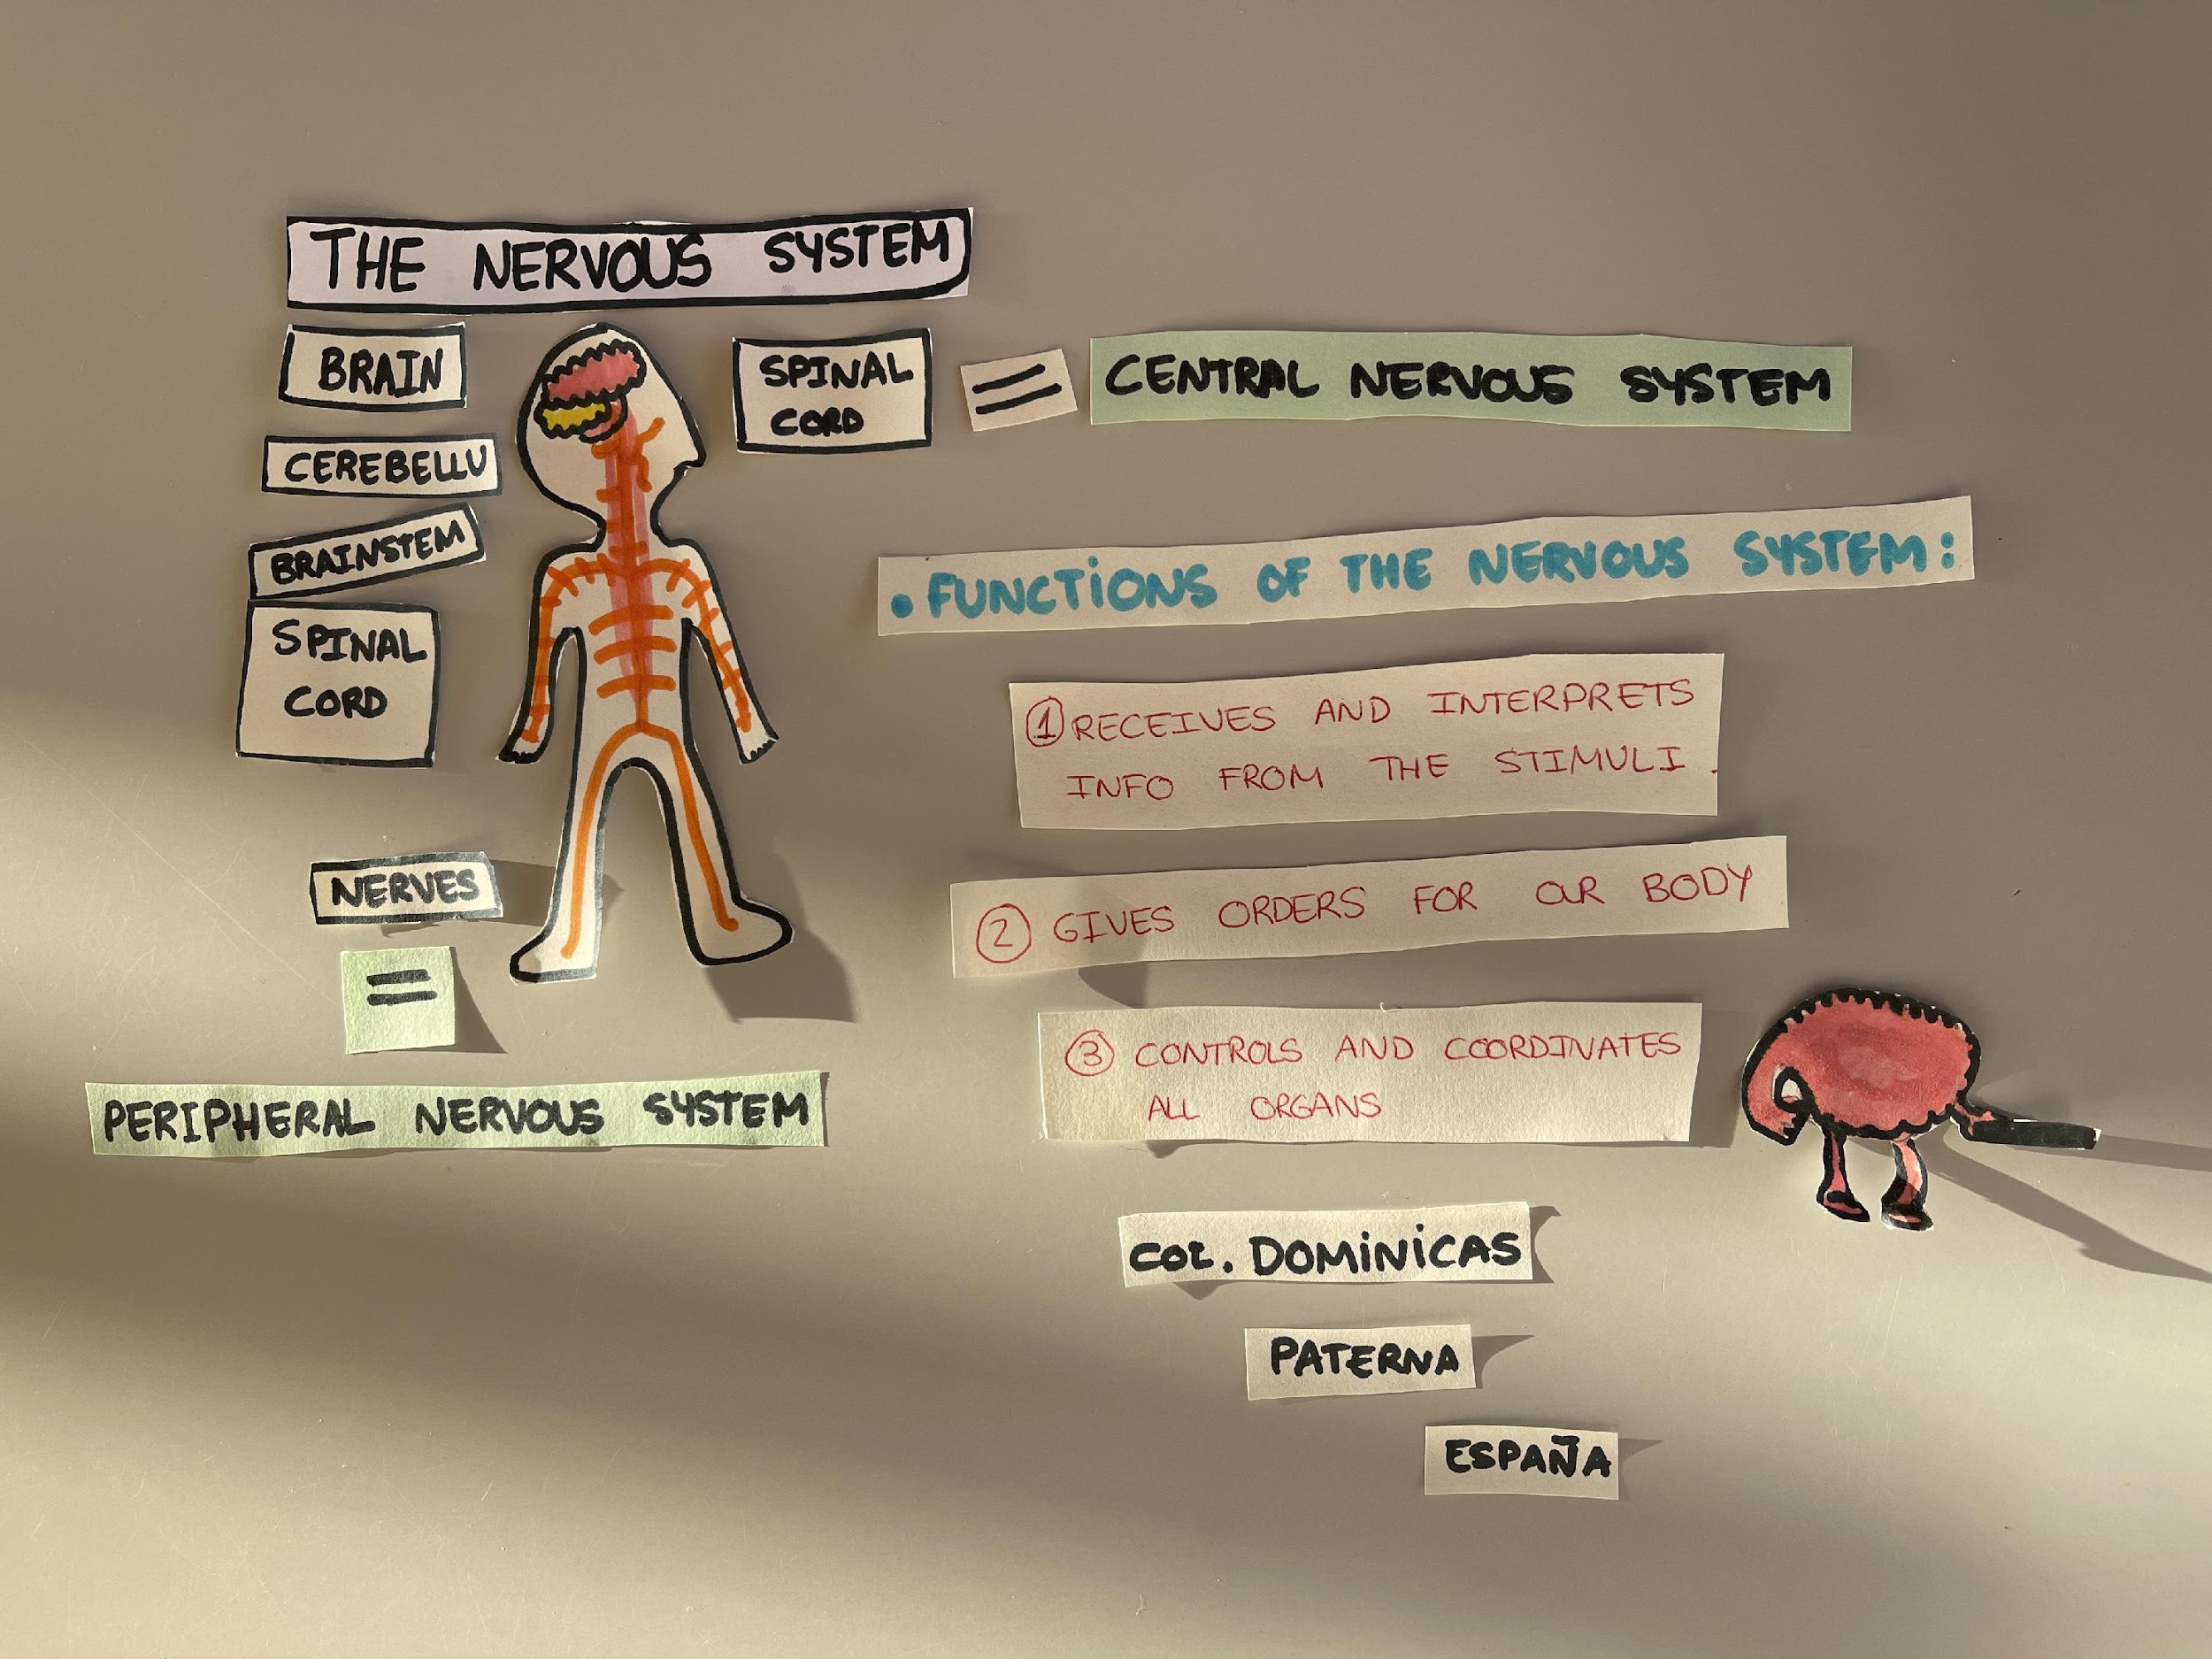 THE NERVOUS SYSTEM
BRAIN
CEREBELLU
BRAINSTEM
SPINAL
CORD
SPINAL
CORD
=
CENTRAL NERVOUS SYSTEM
NERVES
=
PERIPHERAL NERVOUS SYSTEM
• FUNCTIONS OF THE NERVOUS SYSTEM:
① RECEIVES AND INTERPRETS
INFO FROM THE STIMULI.
② GIVES ORDERS FOR OUR BODY
③ CONTROLS AND COORDINATES
ALL ORGANS
COL. DOMINICAS
PATERNA
ESPAÑA